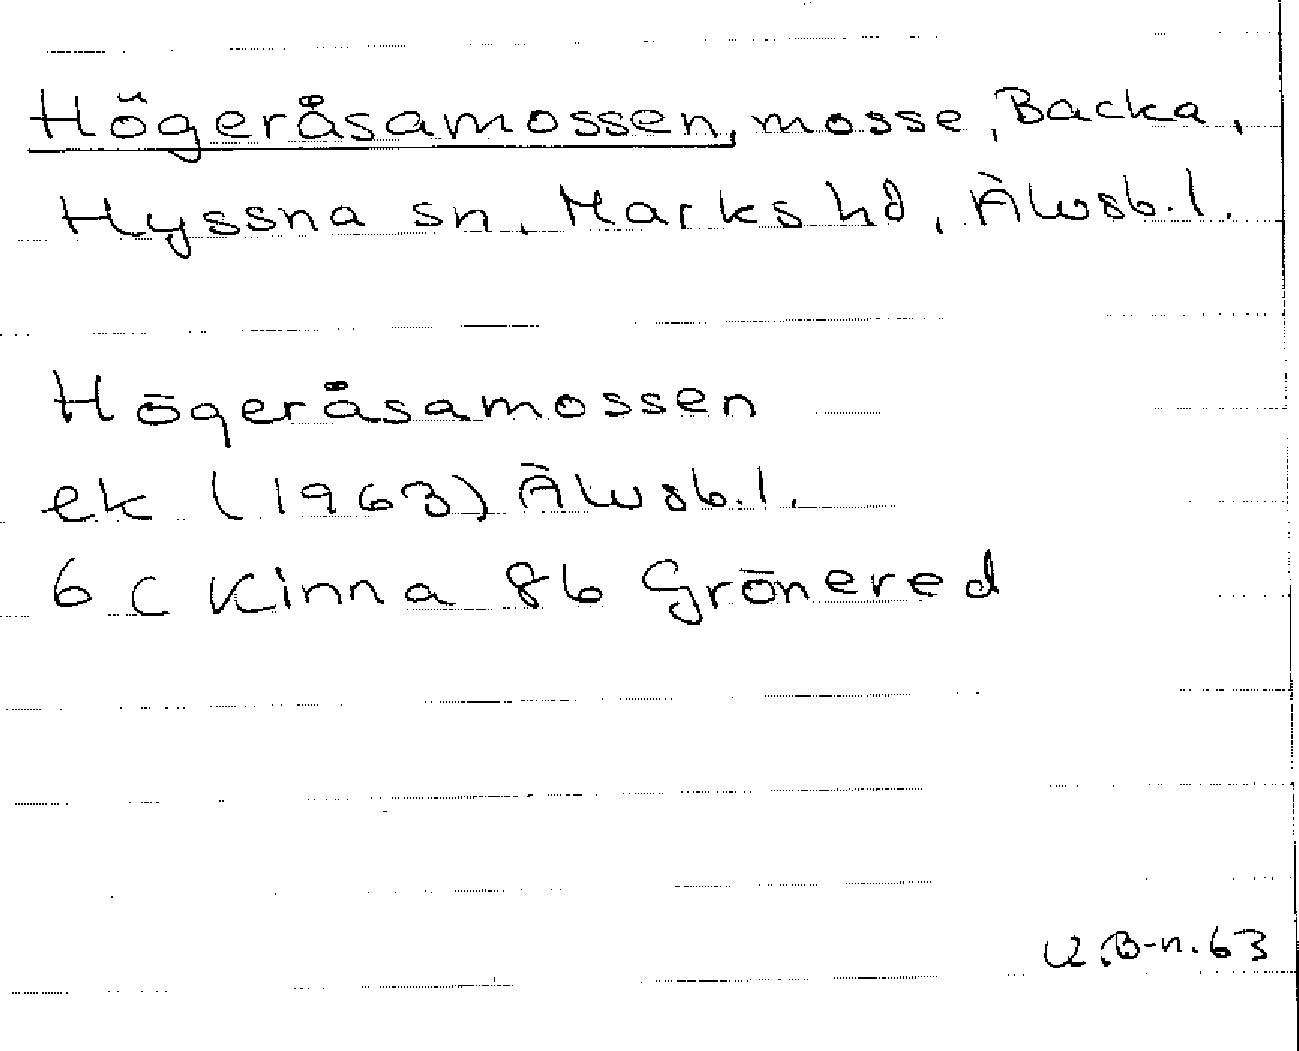 Högeråsamossen, mosse, Backa,
Hyssna sn, Marks hd, Älvsb.l.
Högeråsamossen
ek (1963) Älvsb.l.
6 C Kinna 8b Grönered
B-n. 63